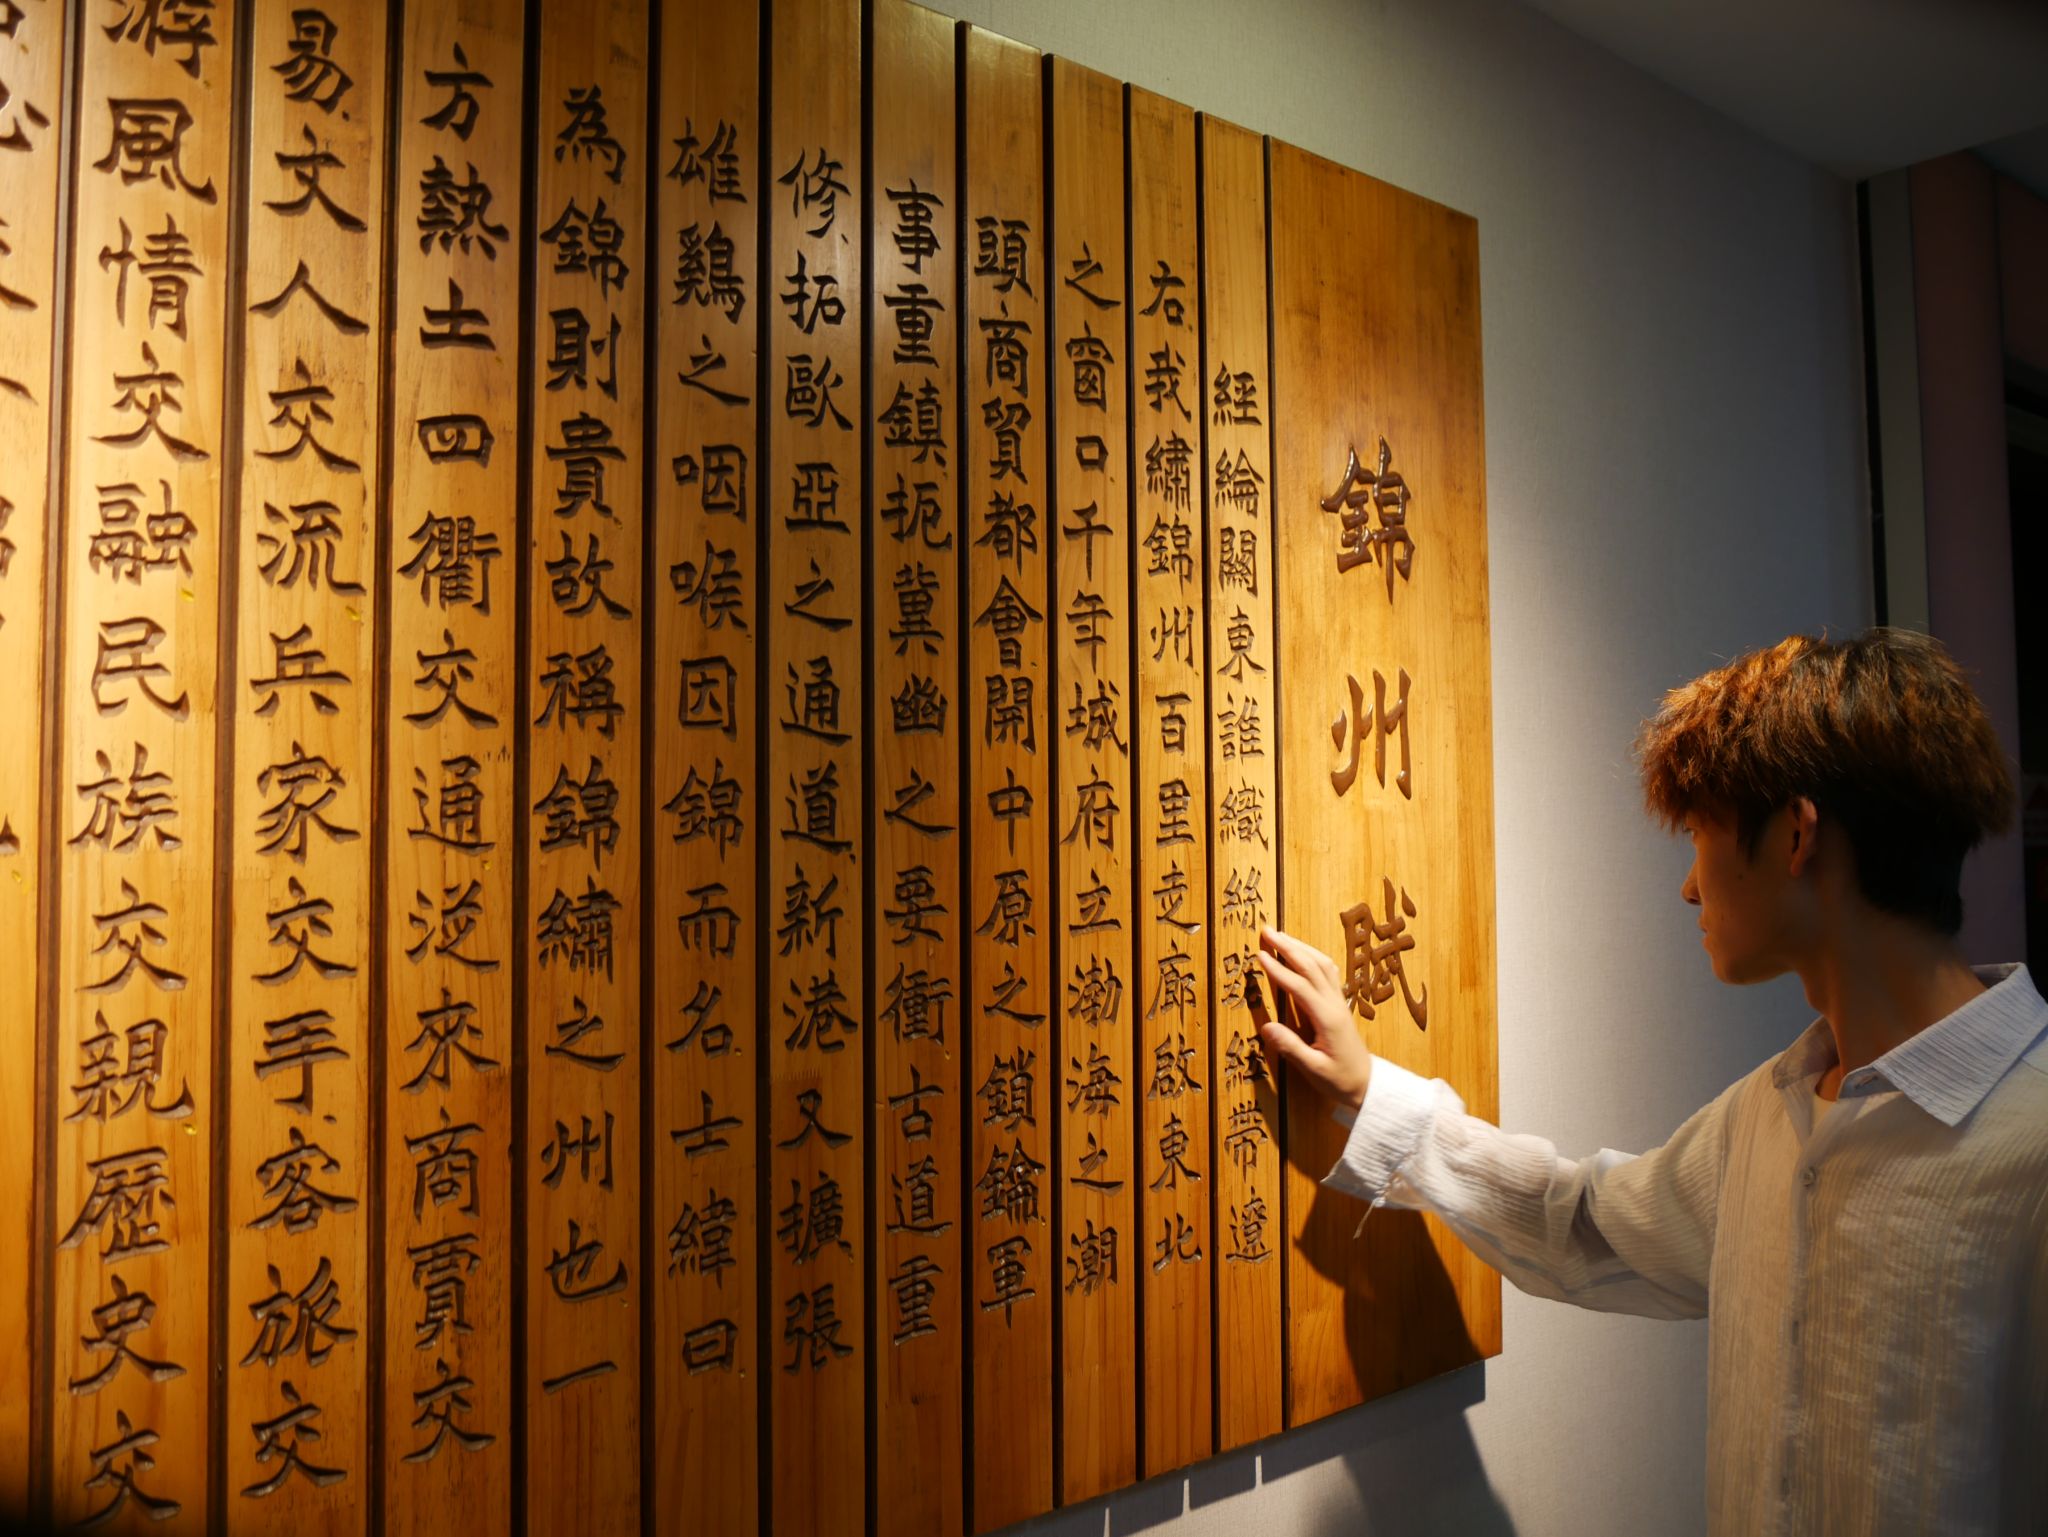 錦州賦
經綸關東誰織絲路經帶遼
右我繡錦州百里走廊啟東北
之窗口千年城府立渤海之潮
頭商貿都會開中原之鎖鑰軍
事重鎮扼冀幽之要衝古道重
修拓歐亞之通道新港又擴張
雄鷄之咽喉因錦而名士緯曰
為錦則貴故稱錦繡之州也一
方熱土四衢交通逆來商賈交
易文人交流兵家交手客旅交
游風情交融民族交親歷史交